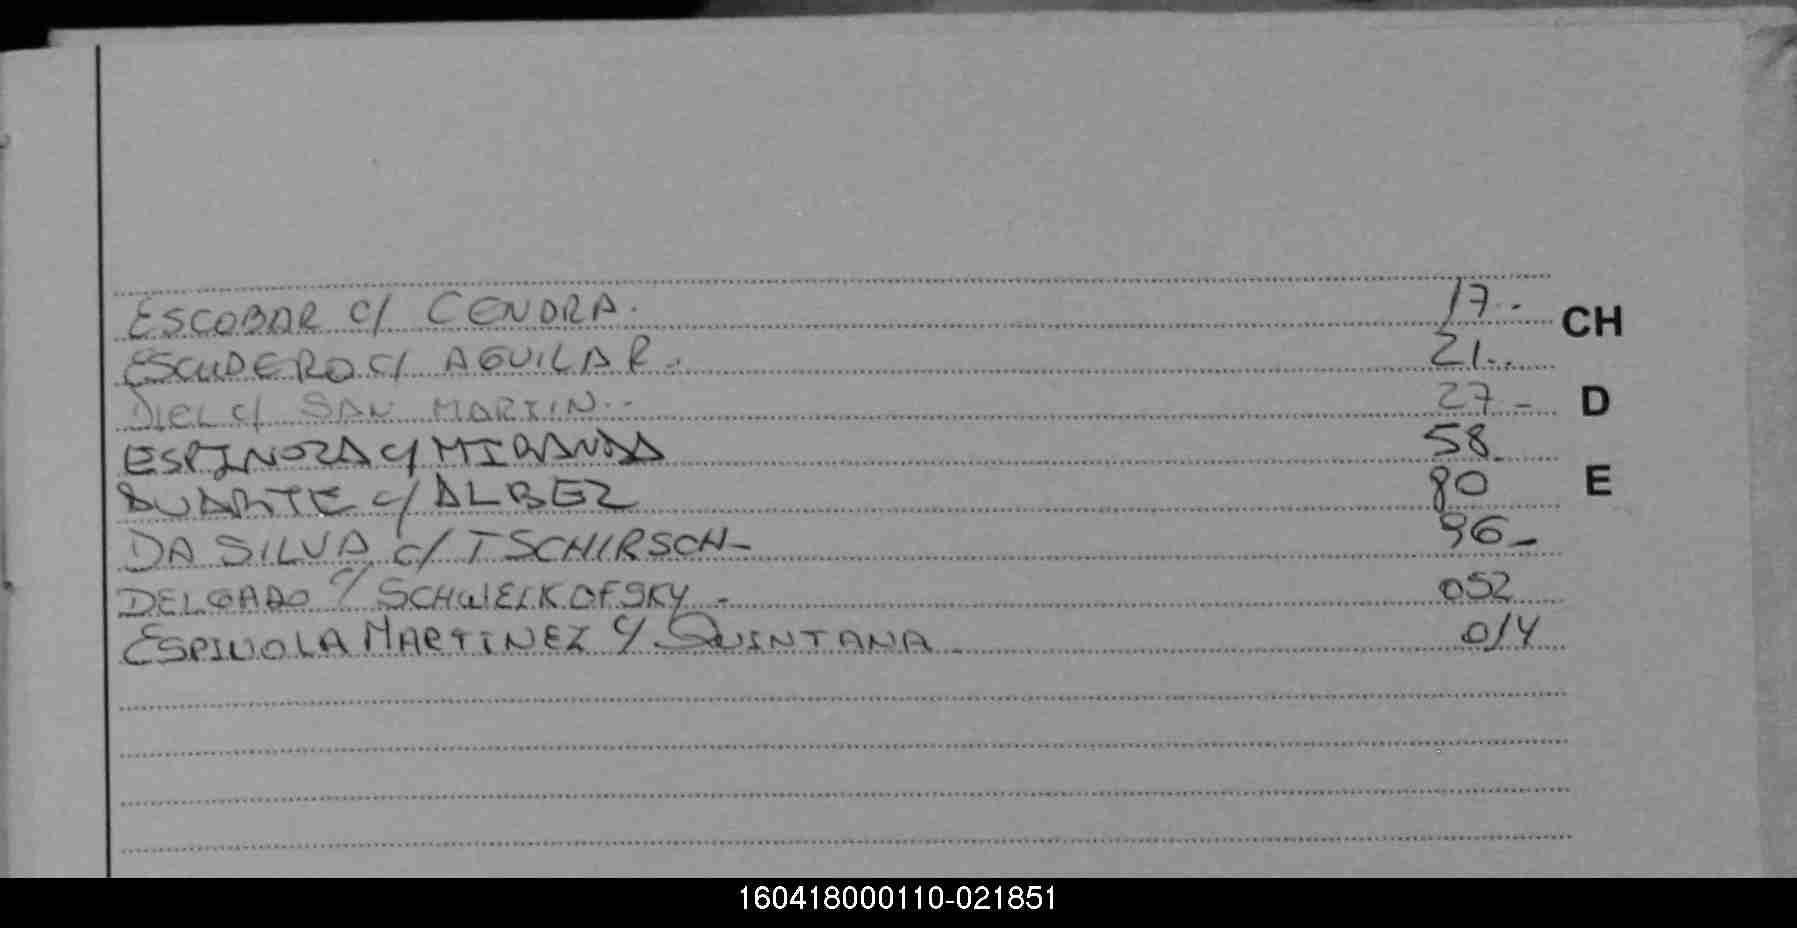 ESCOBAR c/ CENDRA. 17.-
ESCUDERO c/ AGUILAR.- 21.-
CH
DIEL c/ SAN MARTIN.- 27-
D
ESPINOZA c/ MIRANDA 58
DUARTE c/ ALBEZ 80
E
DA SILVA c/ TSCHIRSCH- 96-
DELGADO c/ SCHWEIKOFSKY.- 052
ESPINOLA MARTINEZ c/. QUINTANA. 014
160418000110-021851